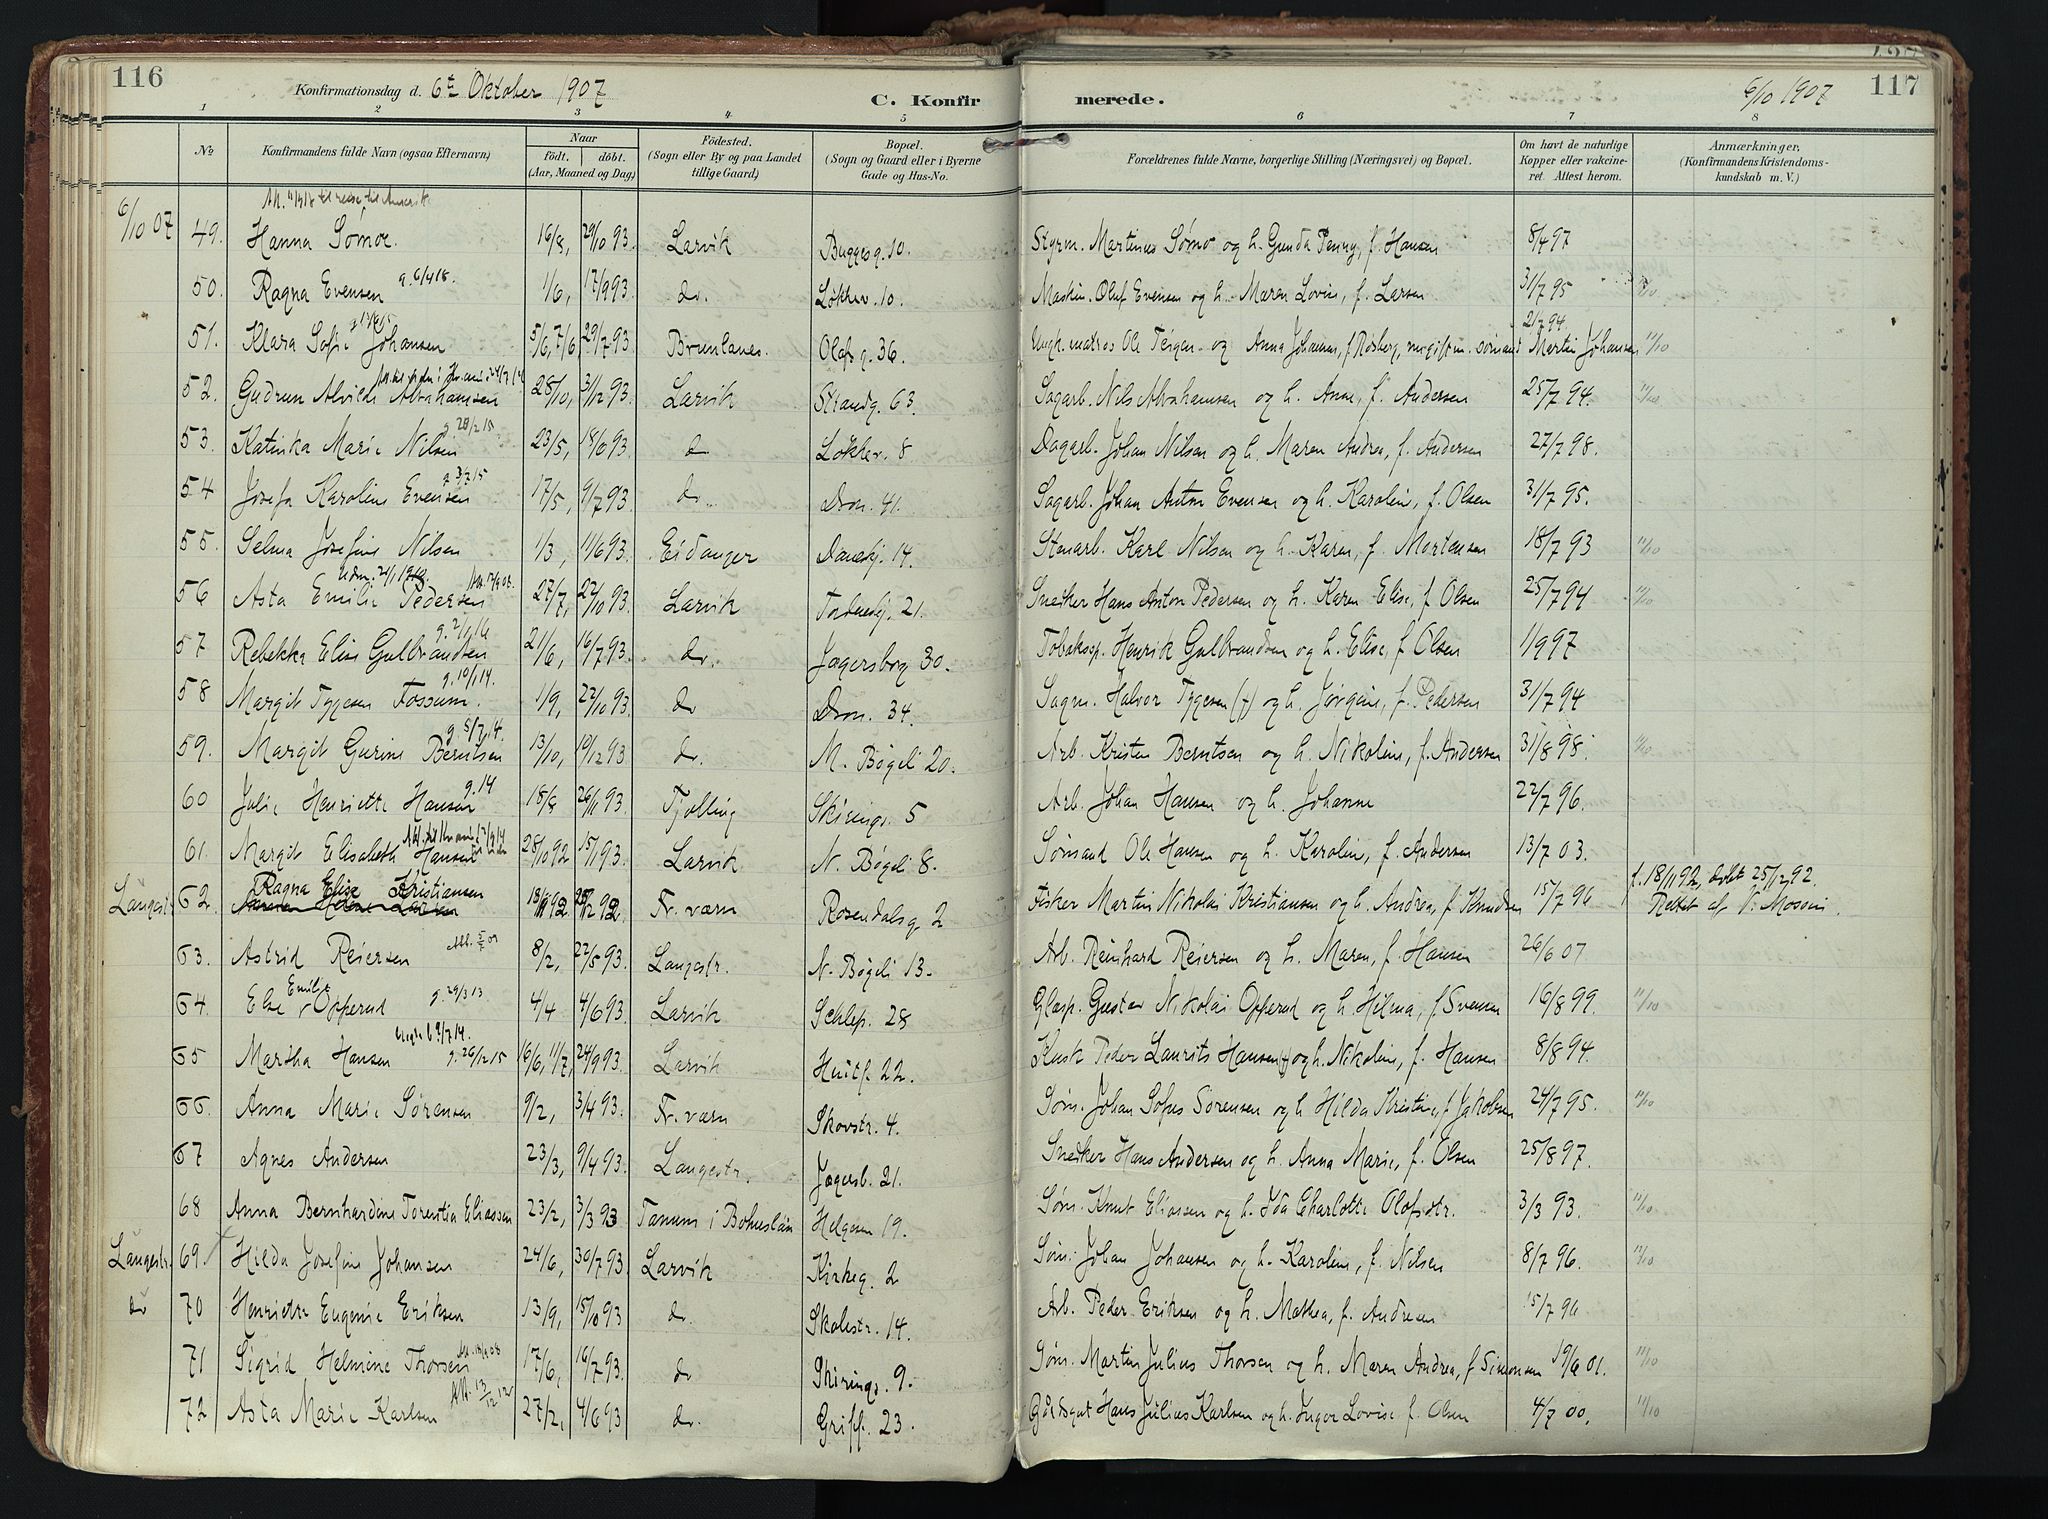 116
Konfirmationsdag d. 6te Oktober 1907
C. Konfir
merede.
6/10 1907
117
1 2 3 4 5 6 7 8
No
Konfirmandens fulde Navn (ogsaa Efternavn)
Naar
födt. döbt.
(Aar, Maaned og Dag)
Födested.
(Sogn eller By og paa Landet
tillige Gaard)
Bopæl.
(Sogn og Gaard eller i Byerne
Gade og Hus-No.
Forældrenes fulde Navne, borgerlige Stilling (Næringsvei) og Bopæl.
Om havt de naturlige
Kopper eller vakcine-
ret. Attest herom.
Anmærkninger.
(Konfirmandens Kristendoms-
kundskab m. V.)
6/10 07 49. Hanna Sømoe. 16/8, 29/10 93. Larvik Buggesg. 10. Styrm. Martinus Sømo og h. Gunda Penny, f. Hansen 8/4 97
50. Ragna Evensen g. 6/4 18. 1/6, 17/9 93. do. Løkkev. 10. Maskin. Oluf Evensen og h. Maren Lovise, f. Larsen 31/7 95
51. Klara Sofie Johansen 5/6, 7/6, 29/7 93. Brunlanes. Olafsg. 36. Ungk. matros Ole Terger og Anna Johannes, f. Rosberg, nu gift m. sømand Martin Johansen 21/7 94. 11/10
52. Gudrun Alvilde Abrahamsen 28/10, 31/12 93. Larvik Strandg. 63. Sagarb. Nils Abrahamsen og h. Anne, f. Andersen 25/7 94.
53. Katinka Marie Nilsen g 28/2 15 23/5, 18/6 93. do Løkkev. 8 Dagarb. Johan Nilsen og h. Maren Andrea, f. Andersen 27/7 98.
54 Josefa Karoline Evensen g 3/7 15 17/5, 9/7 93. do. Dron. 41. Sagarb. Johan Anton Evensen og h. Karoline, f. Olsen 31/7 95.
55. Selma Josefine Nilsen 1/3, 11/6 93. Eidanger Daneskj. 14. Stenarb. Karl Nilsen og h. Karen, f. Mortensen 18/7 93 11/10
56 Asta Emilie Pedersen 27/7, 22/10 93. Larvik Tordenskj. 21. Snedker Hans Anton Pedersen og h. Karen Elise, f. Olsen 25/7 94
57 Rebekka Elise Gulbrandsen g. 2/1 16 21/6, 16/7 93. do. Jegersborg 30. Tobakssp. Henrik Gulbrandsen og h. Elise, f. Olsen 1/9 97
58 Margit Tygesen Fossum. g. 10/1 14. 1/9, 22/10 93. do Dron. 34. Sagm. Halvor Tygesen (+) og h. Jørgine, f. Pedersen 31/7 94
59. Margit Gurine Berntsen g. 5/7 14. 13/10, 10/12 93. do. M. Bøgeli 20. Arb. Kristen Berntsen og h. Nikoline, f. Andersen 31/8 98. 11/10
60 Julie Henriette Hansen g. 14 18/8 26/11 93. Tjølling Skirings. 5 Arb. Johan Hansen og h. Johanne 22/7 96.
61. Margit Elisabeth Hansen 28/10 92 15/1 93. Larvik N. Bøgeli 8. Sømand Ole Hansen og h. Karoline, f. Andersen 13/7 03.
Langestr. 62. Ragna Elise Kristiansen 18/11 92 25/12 92. Fr. værn Rosendalsg. 2 Fisker Martin Nikolai Kristiansen og h. Andrea, f. Knudsen 15/7 96 f. 18/11 92, døbt 25/12 92.
Rettet af
63. Astrid Reiersen 8/2, 22/5 93. Langestr. N. Bøgeli 13. Arb. Reinhard Reiersen og h. Maren, f. Hansen 26/6 07
64. Else Emilie Opperud g. 29/3 13 4/4 4/6 93. Larvik Schlep. 28 Glasp. Gustav Nikolai Opperud og h. Hilma, f. Svensen 16/8 99. 11/10
65 Martha Hansen g. 26/12 15 16/6, 11/7, 24/9 93. Larvik Huitf. 22. Kusk Peder Laurits Hansen (+) og h. Nikoline, f. Hansen 8/8 94.
66. Anna Marie Sørensen 9/2, 3/4 93. Fr. værn Skovstr. 4. Søm. Johan Sofus Sørensen og h. Hilda Kristine, f. Jakobsen 24/7 95. 11/10
67 Agnes Andersen 23/3, 9/4 93. Langestr. Jegersb. 21. Snedker Hans Andersen og h. Anna Marie, f. Olsen 25/8 97.
68 Anna Bernhardine Torentia Eliassen 23/2, 3/3 93 Tanum i Bohuslän Helgesen 19. Søm. Knut Eliassen og h. Ida Charlotte Olofsdtr. 3/3 93. 11/10
Langestr. 69 Hilda Josefine Johansen 24/6, 30/7 93. Larvik Kirkeg. 2 Søm. Johan Johansen og h. Karoline, f. Nilsen 8/7 96. 11/10
do 70 Henriette Eugenie Eriksen 13/9, 15/10 93 do. Skolestr. 14. Arb. Peder Eriksen og h. Mathea, f. Andresen 15/7 96
71 Sigrid Helmine Thorsen 17/6, 16/7 93. do Skirings. 9. Søm. Martin Julius Thorsen og h. Maren Andrea, f Simonsen 19/6 01. 11/10
72 Asta Marie Karlsen Att. 13/12 12 27/2, 4/6 93 do. Griff. 23. Godsgut Hans Julius Karlsen og h. Inger Lovise f. Olsen 4/7 00. 11/10